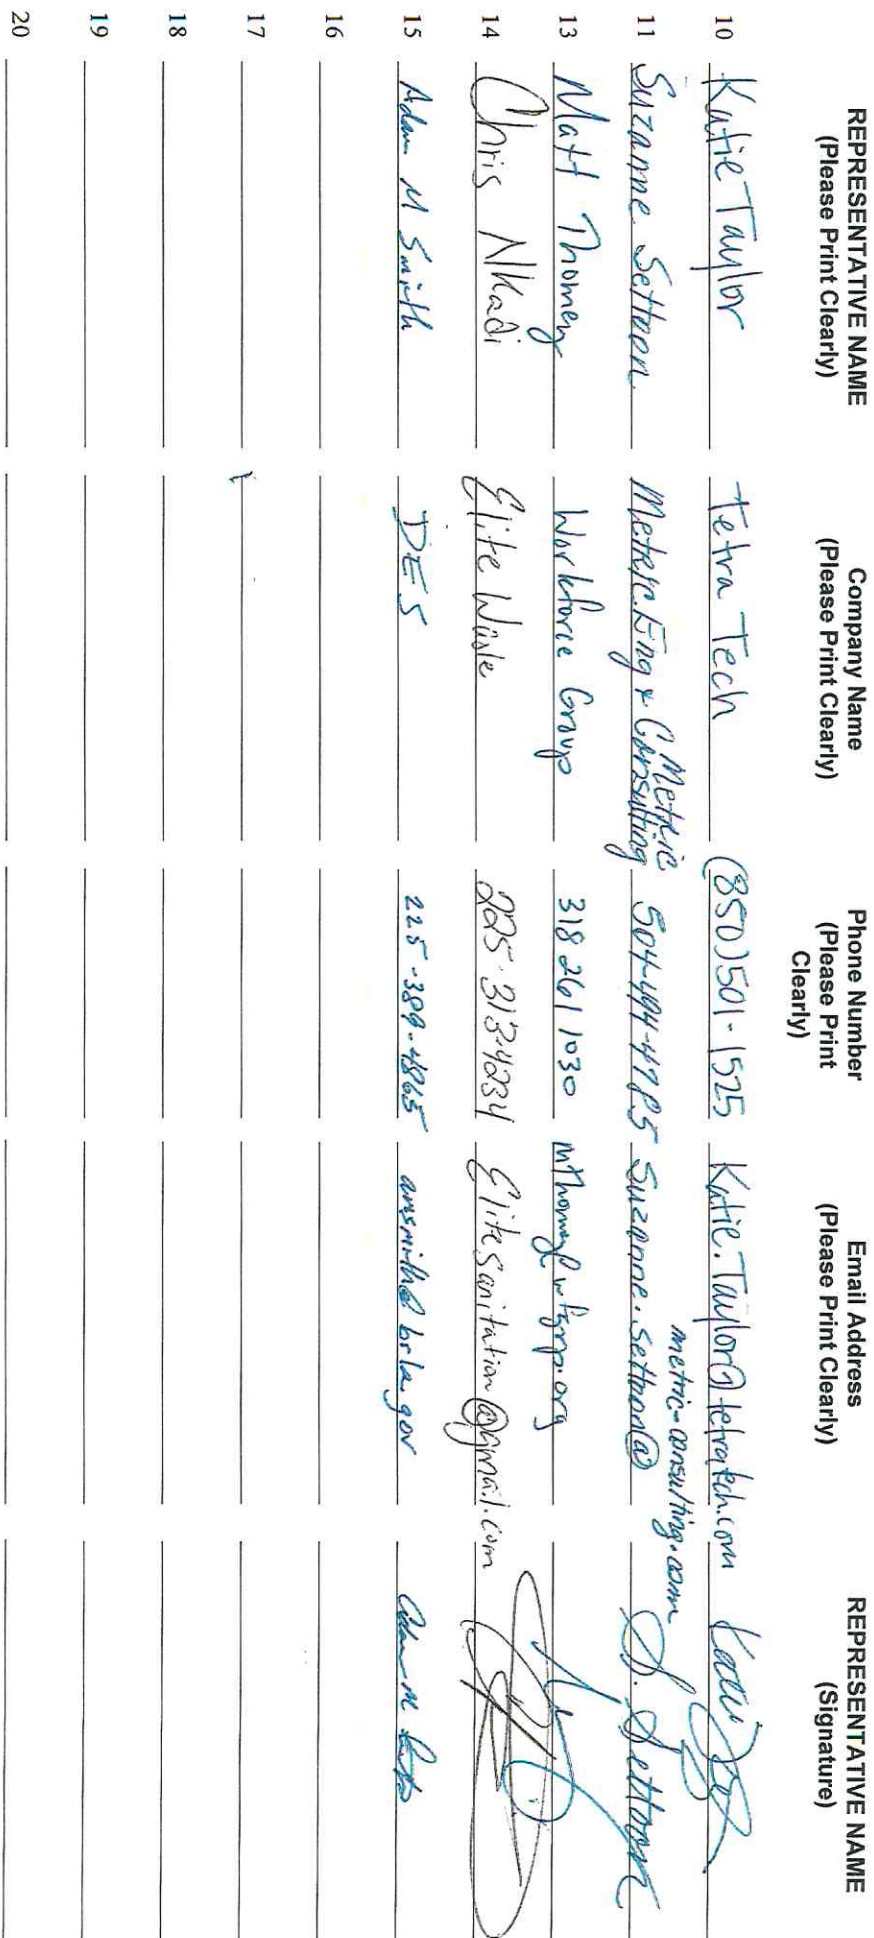 REPRESENTATIVE NAME
(Please Print Clearly)
Company Name
(Please Print Clearly)
Phone Number
(Please Print
Clearly)
Email Address
(Please Print Clearly)
REPRESENTATIVE NAME
(Signature)
10 Katie Taylor Tetra Tech (850)501-1525 Katie.Taylor@tetratech.com
Metric metric-consulting.com
11 Suzanne Settoon Metric Eng & Consulting 504-494-4785 Suzanne.settoon@ S. Settoon
13 Matt Thomey Workforce Group 318 261 1030 mthomey@wfgrp.org
14 Chris Alkadi Elite Waste 225-313-4234 Elitesanitation@gmail.com
15 Adam M Smith DES 225-389-4865 amsmith@brla.gov
16
17
18
19
20